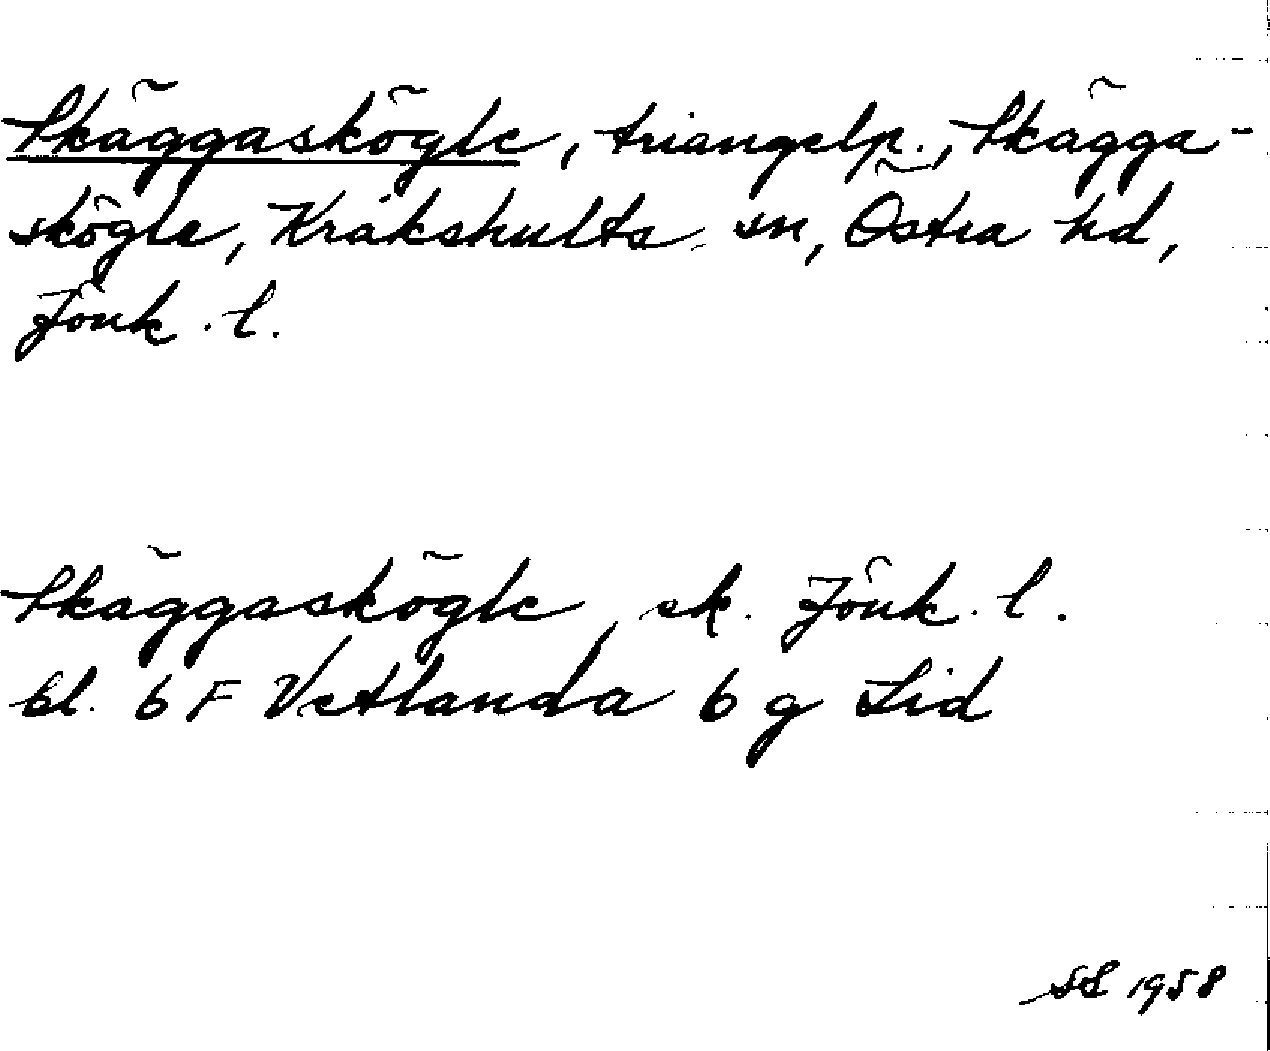 Skäggaskögle, triangelp., Skägga-
skögle, Kråkshults sn, Östra hd,
Jönk. l.
Skäggaskögle, ek. Jönk. l.
bl. 6 F Vetlanda 6 g Lid
SL 1958